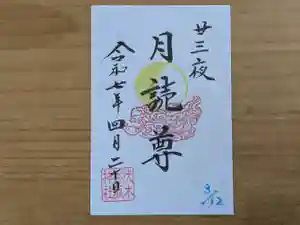 廿三夜
月読尊
令和七年四月二十日
3/12